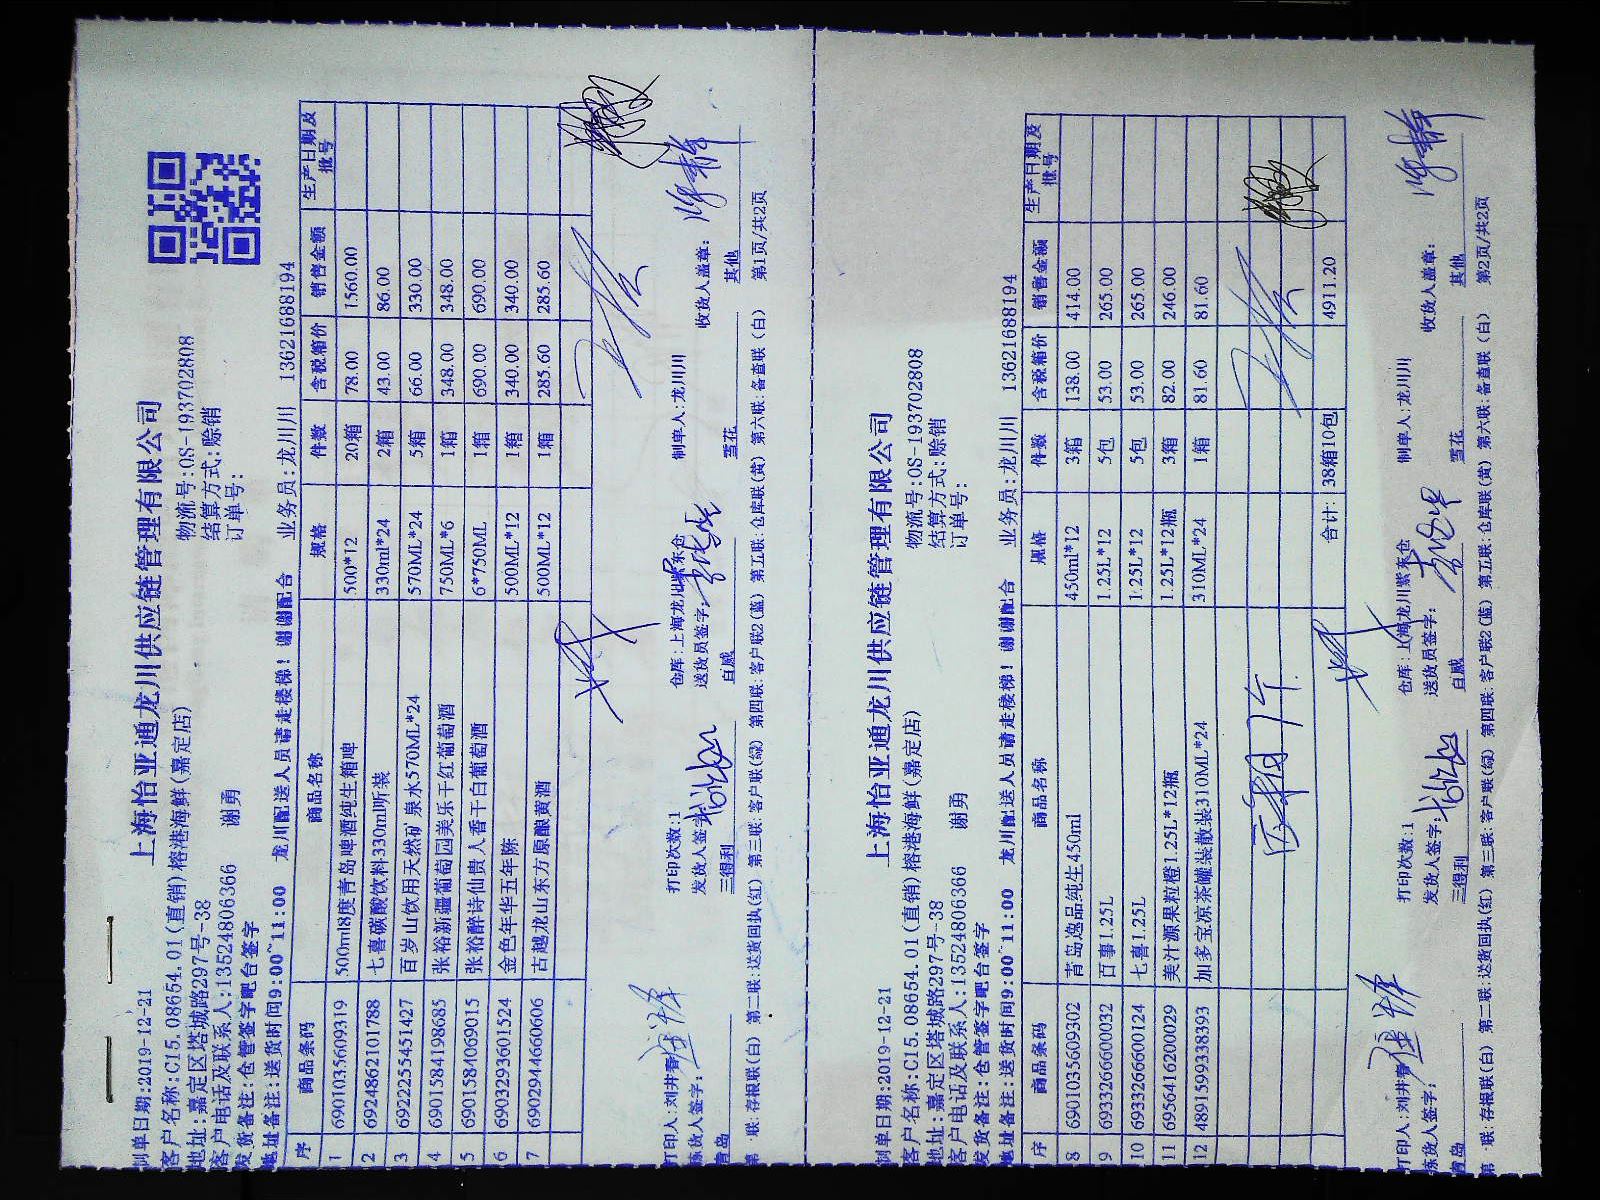 上海怡亚通龙川供应链管理有限公司
制单日期:2019-12-21 物流号:OS-193702808
客户名称:C15.08654.01(直销)榕港海鲜(嘉定店) 结算方式:赊销
地址:嘉定区塔城路297号-38 订单号:
客户电话及联系人:13524806366 谢勇
发货备注:仓管签字吧台签字
地址备注:送货时间9:00~11:00 龙川配送人员请走楼梯!谢谢配合 业务员:龙川川 13621688194
序 商品条码 商品名称 规格 件数 含税箱价 销售金额 生产日期及批号
1 6901035609319 500ml8度青岛啤酒纯生箱啤 500*12 20箱 78.00 1560.00
2 6924862101788 七喜碳酸饮料330ml听装 330ml*24 2箱 43.00 86.00
3 6922255451427 百岁山饮用天然矿泉水570ML*24 570ML*24 5箱 66.00 330.00
4 6901584198685 张裕新疆葡萄园美乐干红葡萄酒 750ML*6 1箱 348.00 348.00
5 6901584069015 张裕醉诗仙贵人香干白葡萄酒 6*750ML 1箱 690.00 690.00
6 6903293601524 金色年华五年陈 500ML*12 1箱 340.00 340.00
7 6902944660606 古越龙山东方原酿黄酒 500ML*12 1箱 285.60 285.60
打印人:刘井春 打印次数:1 仓库:上海龙川紫东仓 制单人:龙川川
拣货人签字: 发货人签字: 送货员签字: 收货人盖章:
青岛 三得利 百威 雪花 其他
第一联:存根联(白) 第二联:送货回执(红) 第三联:客户联(绿) 第四联:客户联2(蓝) 第五联:仓库联(黄) 第六联:备查联(白) 第1页/共2页
上海怡亚通龙川供应链管理有限公司
制单日期:2019-12-21 物流号:OS-193702808
客户名称:C15.08654.01(直销)榕港海鲜(嘉定店) 结算方式:赊销
地址:嘉定区塔城路297号-38 订单号:
客户电话及联系人:13524806366 谢勇
发货备注:仓管签字吧台签字
地址备注:送货时间9:00~11:00 龙川配送人员请走楼梯!谢谢配合 业务员:龙川川 13621688194
序 商品条码 商品名称 规格 件数 含税箱价 销售金额 生产日期及批号
8 6901035609302 青岛逸品纯生450ml 450ml*12 3箱 138.00 414.00
9 6933266600032 百事1.25L 1.25L*12 5包 53.00 265.00
10 6933266600124 七喜1.25L 1.25L*12 5包 53.00 265.00
11 6956416200029 美汁源果粒橙1.25L*12瓶 1.25L*12瓶 3箱 82.00 246.00
12 4891599338393 加多宝凉茶罐装散装310ML*24 310ML*24 1箱 81.60 81.60
合计: 38箱10包 4911.20
打印人:刘井春 打印次数:1 仓库:上海龙川紫东仓 制单人:龙川川
拣货人签字: 发货人签字: 送货员签字: 收货人盖章:
青岛 三得利 百威 雪花 其他
第一联:存根联(白) 第二联:送货回执(红) 第三联:客户联(绿) 第四联:客户联2(蓝) 第五联:仓库联(黄) 第六联:备查联(白) 第2页/共2页